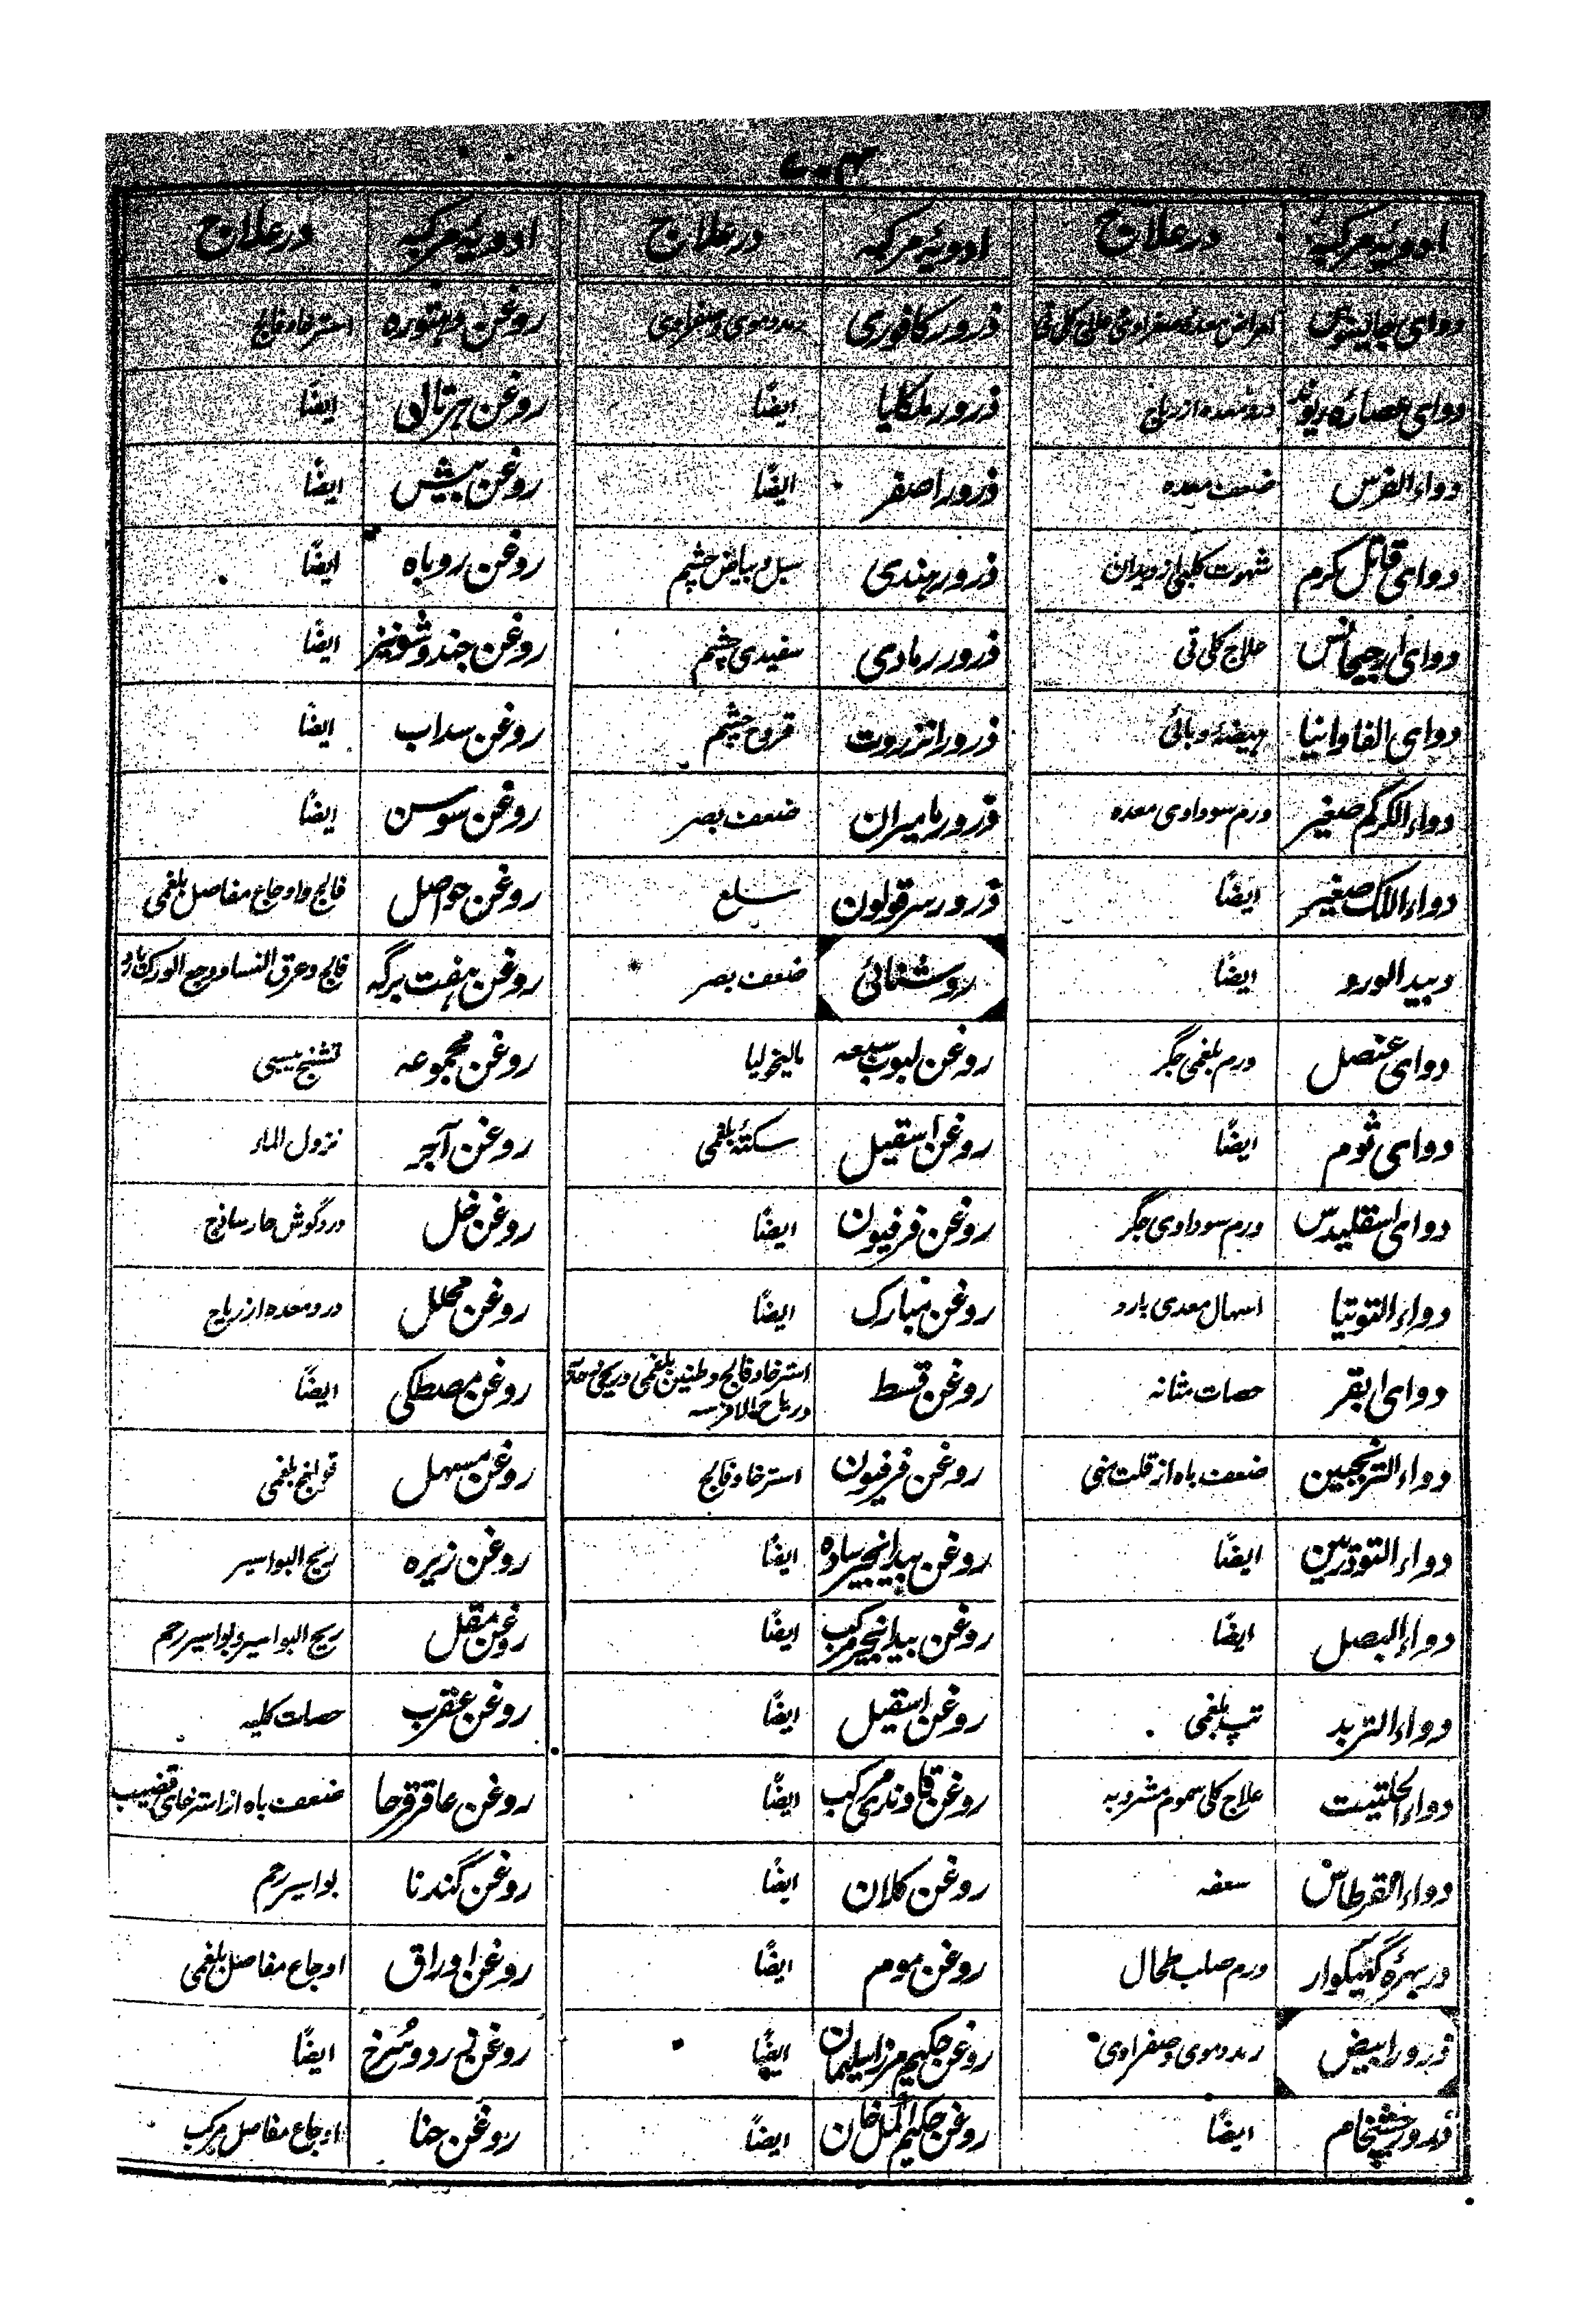 ادویۂ مرکبہ | در علاج | ادویۂ مرکبہ | در علاج | ادویۂ مرکبہ | در علاج
دوای جالینوس | امراض معدہ صفراوی علاج کلی قی | ذرور کافوری | رمد دموی و صفراوی | روغن دہتورہ | استرخا و فالج
دوای عصارہ ریوند | درد معدہ از ریاح | ذرور ملکایا | ایضًا | روغن ہرتال | ایضًا
دواء الفرس | ضعف معدہ | ذرور اصفر | ایضًا | روغن بیش | ایضًا
دوای قاتل کرم | شہوت کلبی از دیدان | ذرور ہندی | سبل و بیاض چشم | روغن روباہ | ایضًا
دوای ارجیجانس | علاج کلی قی | ذرور رمادی | سفیدی چشم | روغن جند و شونیز | ایضًا
دوای الفاوانیا | ہیضۂ وبائی | ذرور انزروت | قروح چشم | روغن سداب | ایضًا
دواء الکرکم صغیر | ورم سوداوی معدہ | ذرور مامیران | ضعف بصر | روغن سوسن | ایضًا
دواء اللک صغیر | ایضًا | ذرور سرقولون | سلع | روغن حواصل | فالج و اوجاع مفاصل بلغمی
دبید الورد | ایضًا | روشنائی | ضعف بصر | روغن ہفت برگہ | فالج و عرق النسا و وجع الورک بارد
دوای عنصل | ورم بلغمی جگر | روغن لبوب سبعہ | مالیخولیا | روغن مجموعہ | تشنج یبسی
دوای ثوم | ایضًا | روغن اسقیل | سکتۂ بلغمی | روغن آجر | نزول الماء
دوای اسقلیدس | ورم سوداوی جگر | روغن فرفیون | ایضًا | روغن خل | درد گوش حار ساذج
دواء التوتیا | اسہال معدی بارد | روغن مبارک | ایضًا | روغن محلل | درد معدہ از ریاح
دوای ابقر | حصات مثانہ | روغن قسط | استرخا و فالج و طنین بلغمی و ریحی و
در ریاح الافرسہ | روغن مصطکی | ایضًا
دواء الترنجبین | ضعف باہ از قلت منی | روغن فرفیون | استرخا و فالج | روغن مسہل | قولنج بلغمی
دواء التوذریین | ایضًا | روغن بیدانجیر سادہ | ایضًا | روغن زیرہ | ریح البواسیر
دواء البصل | ایضًا | روغن بیدانجیر مرکب | ایضًا | روغن مقل | ریح البواسیر و بواسیر رحم
دواء التربد | تپ بلغمی | روغن اسقیل | ایضًا | روغن عقرب | حصات کلیہ
دواء الحلتیت | علاج کلی سموم مشروبہ | روغن قاوندی مرکب | ایضًا | روغن عاقرقرحا | ضعف باہ از استرخای قضیب
دواء القرطاس | سعفہ | روغن کلان | ایضًا | روغن گندنا | بواسیر رحم
دربہرۂ گھیکوار | ورم صلب طحال | روغن موم | ایضًا | روغن اوراق | اوجاع مفاصل بلغمی
ذرور ابیض | رمد دموی و صفراوی | روغن حکیم مرزا سلیمان | ایضًا | روغن | ایضًا
ذرور چشخام | ایضًا | روغن حکیم اکمل خان | ایضًا | روغن حنا | اوجاع مفاصل مرکب